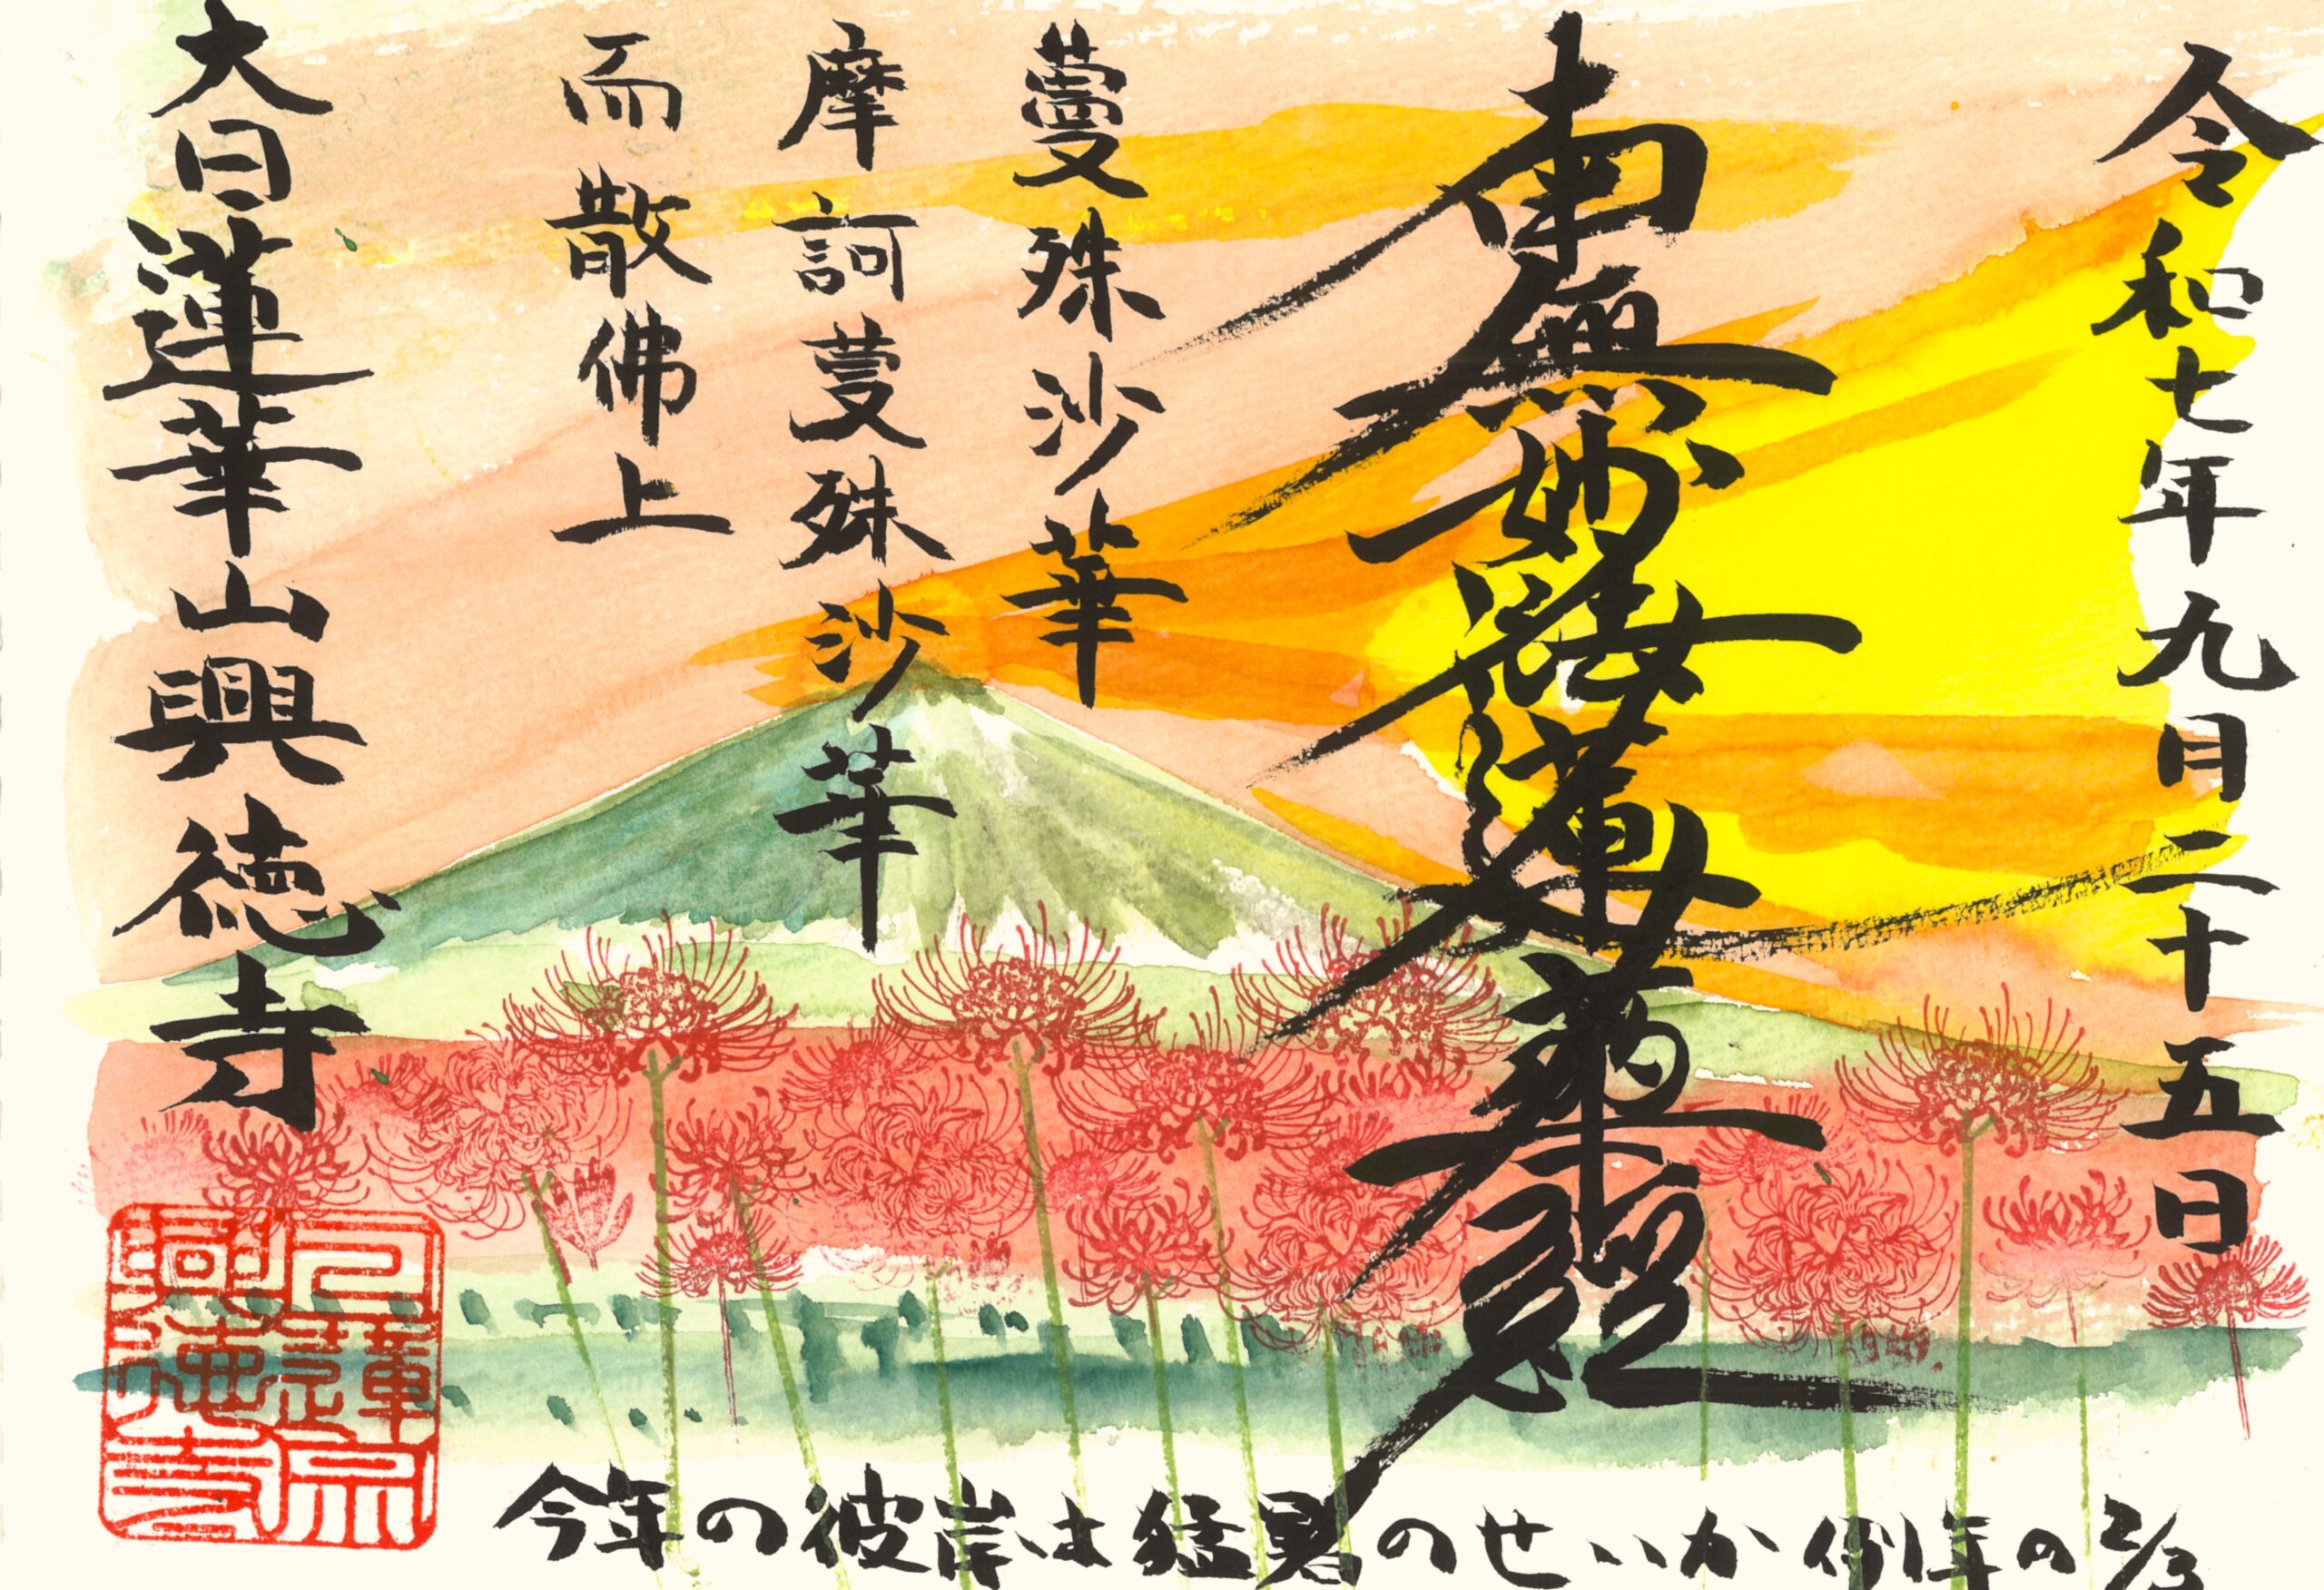 令和七年九月二十五日
南無妙法蓮華経
蔓殊沙華
摩訶蔓殊沙華
而散佛上
大日蓮華山興徳寺
日蓮宗
興徳寺
今年の彼岸は猛暑のせいか例年の2/3